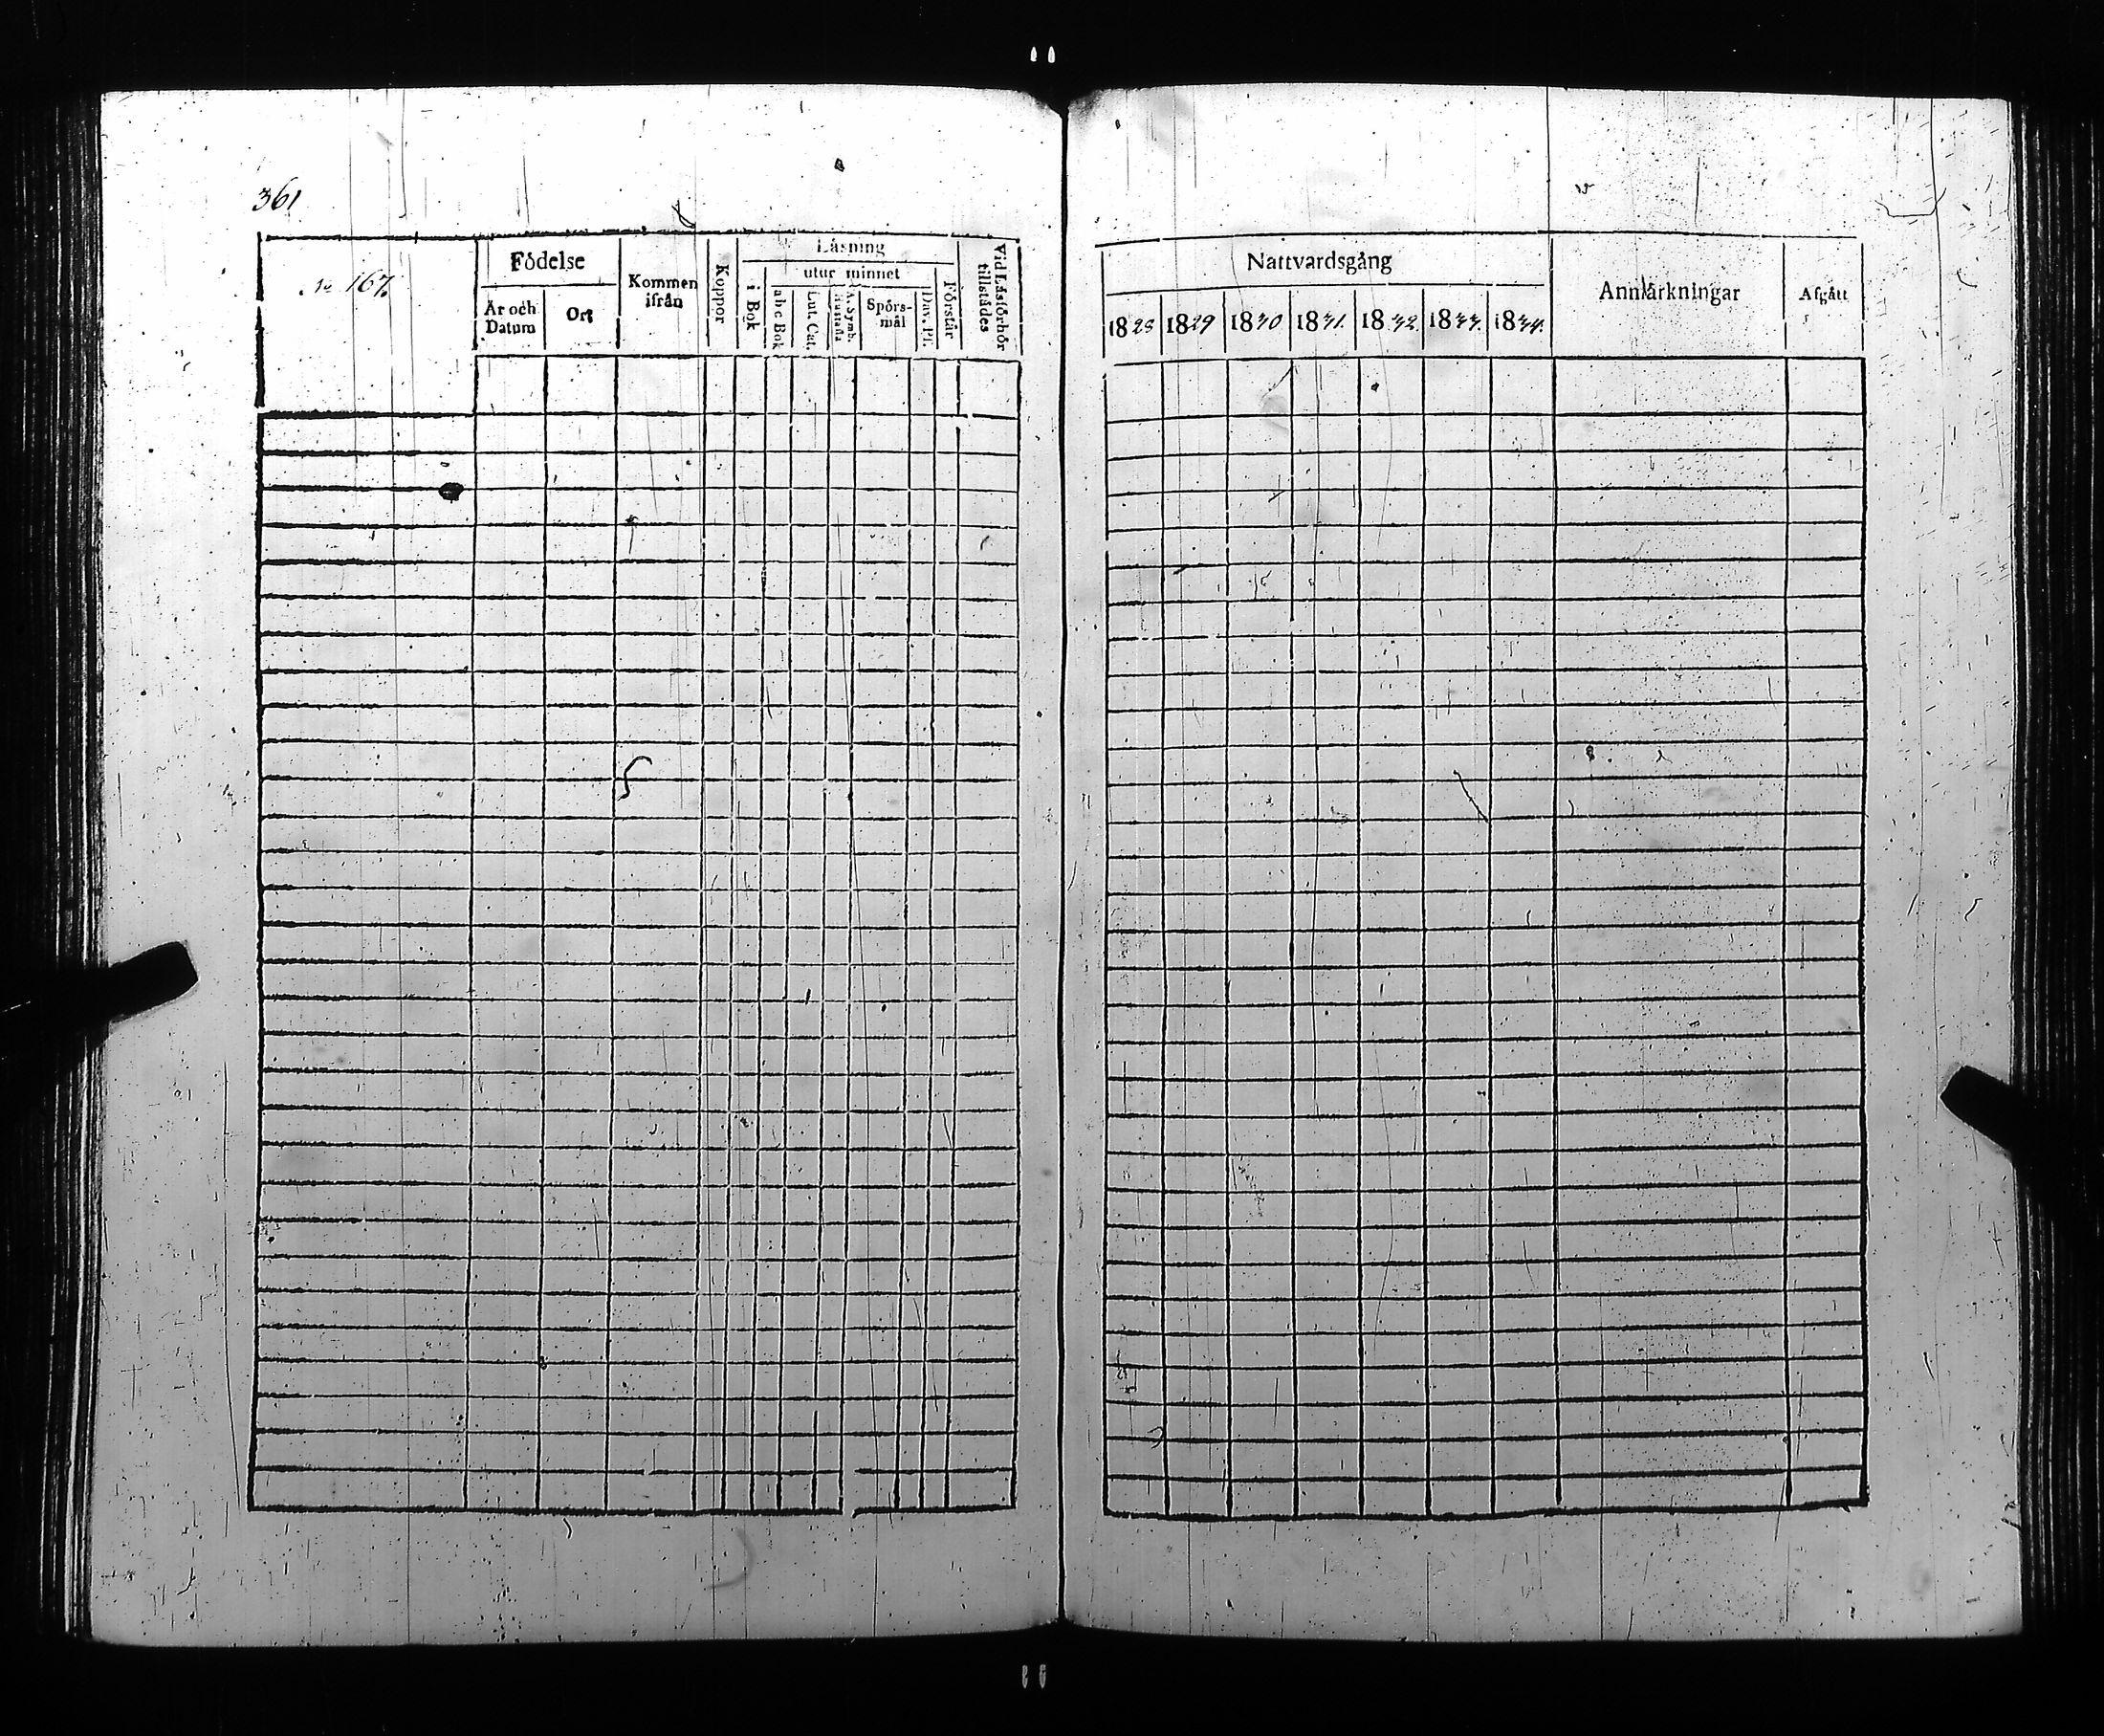 361
No 167.
Födelse
År och
Datum
Ort
Kommen
ifrån
Koppor
Läsning
i Bok
utur minnet
a b c Bok
Lut. Cat.
A. Symb.
Hustafla
Spörs-
mål
Dav. Ps.
Förstår
Vid Läsförhör
tillstädes
Nattvardsgång
1828 1829 1830 1831. 1832. 1833. 1834.
Anmärkningar
Afgått